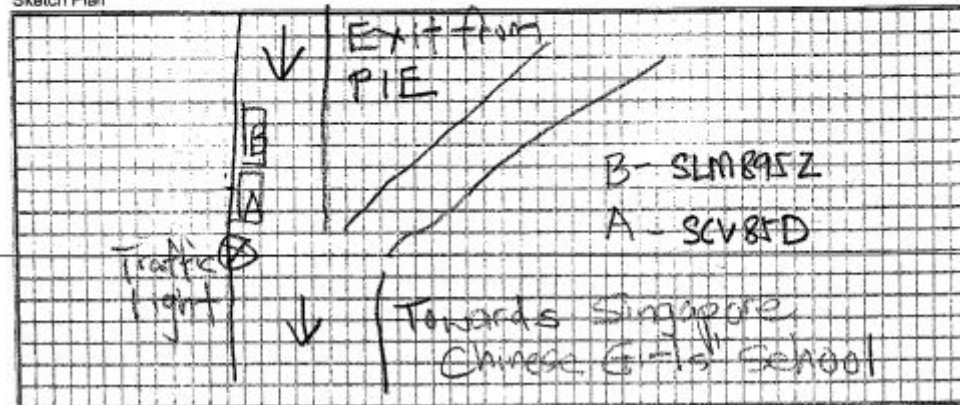 Sketch Plan
Exit from
PIE
B
A
B - SLM8952
A - SCV85D
Traffic
light
Towards Singapore
Chinese Girls' School